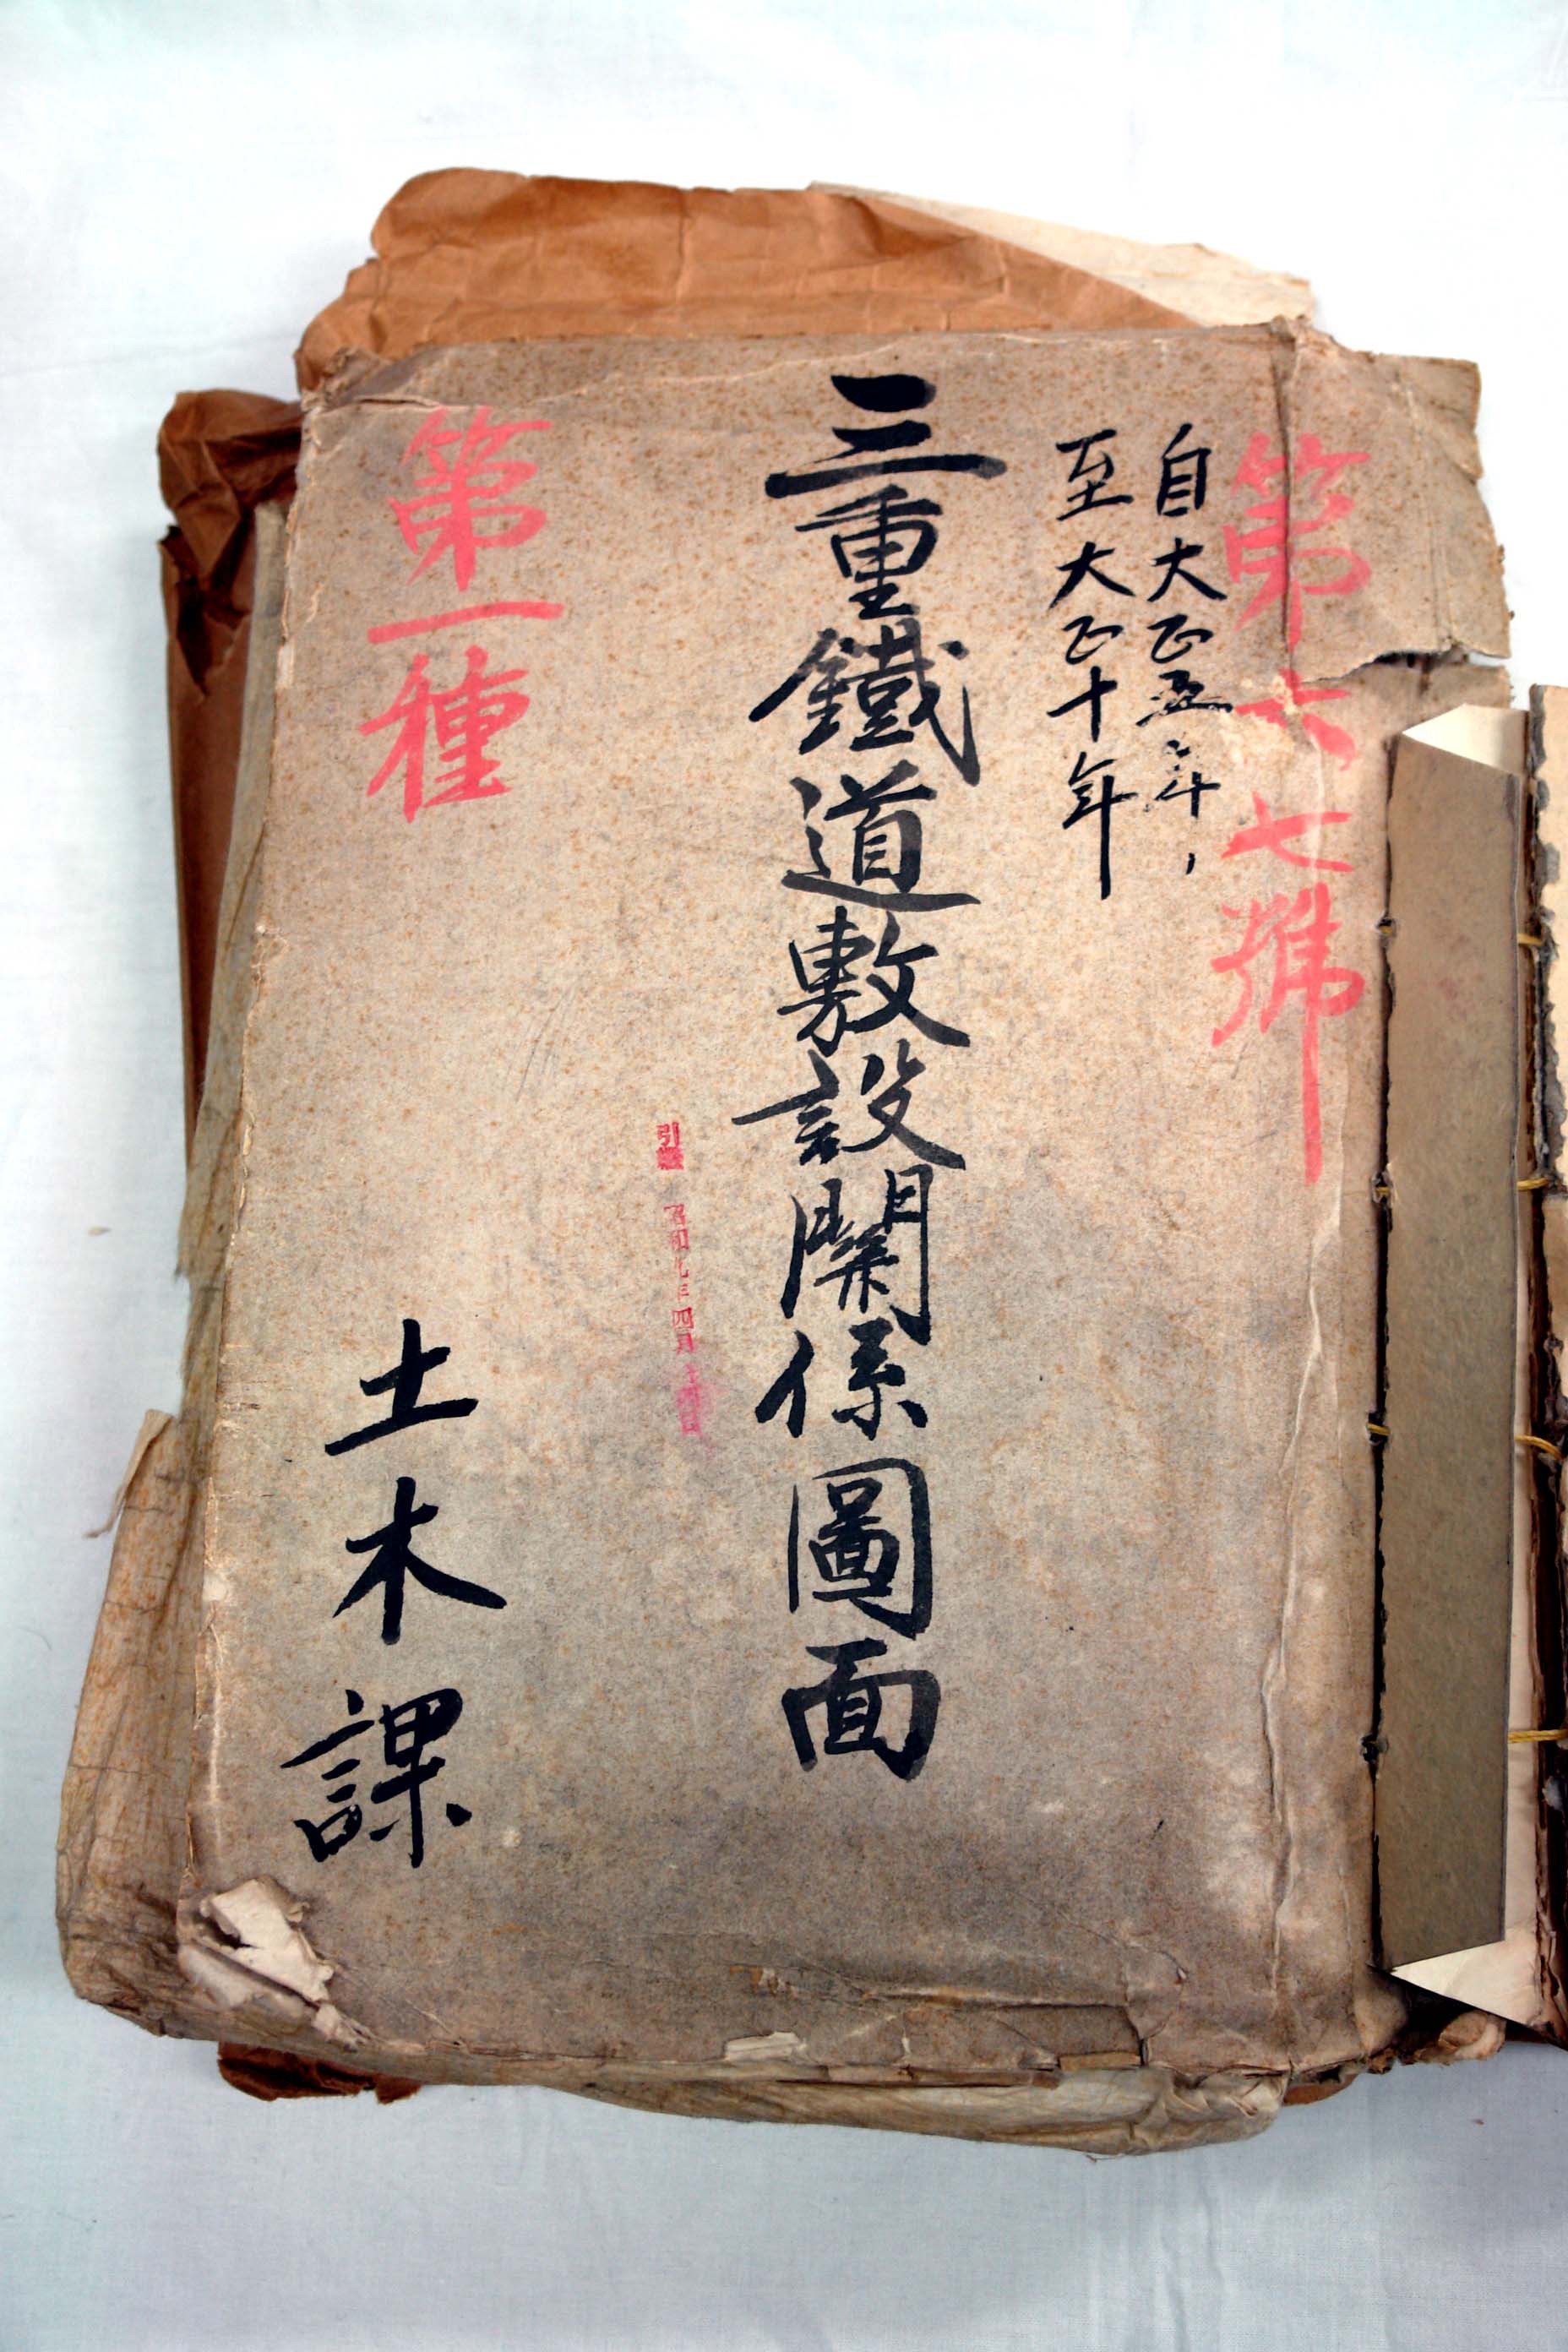 第六七號
自大正五年
至大正十年
三重鐵道敷設關係圖面
引繼 昭和九年四月
第一種
土木課